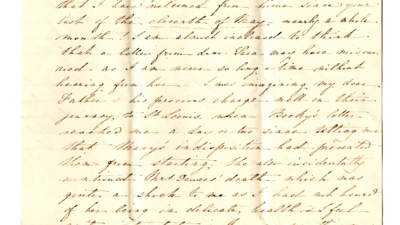 that I have received from time since your
last of the eleventh of May. nearly a whole
month! I am almost inclined to think
that a letter from dear Eliza may have miscar
ried as I am never so long a time without
hearing from her. I was imagining my dear
Father & his precious charge well on their
journey to St. Louis, when Becky's letter
reached me a day or two since telling me
that Mary's indisposition had prevented
them from starting. She also incidentally
mentioned Mrs death, which was
quite a shock to me as I had not heard
of her being in delicate health. I feel